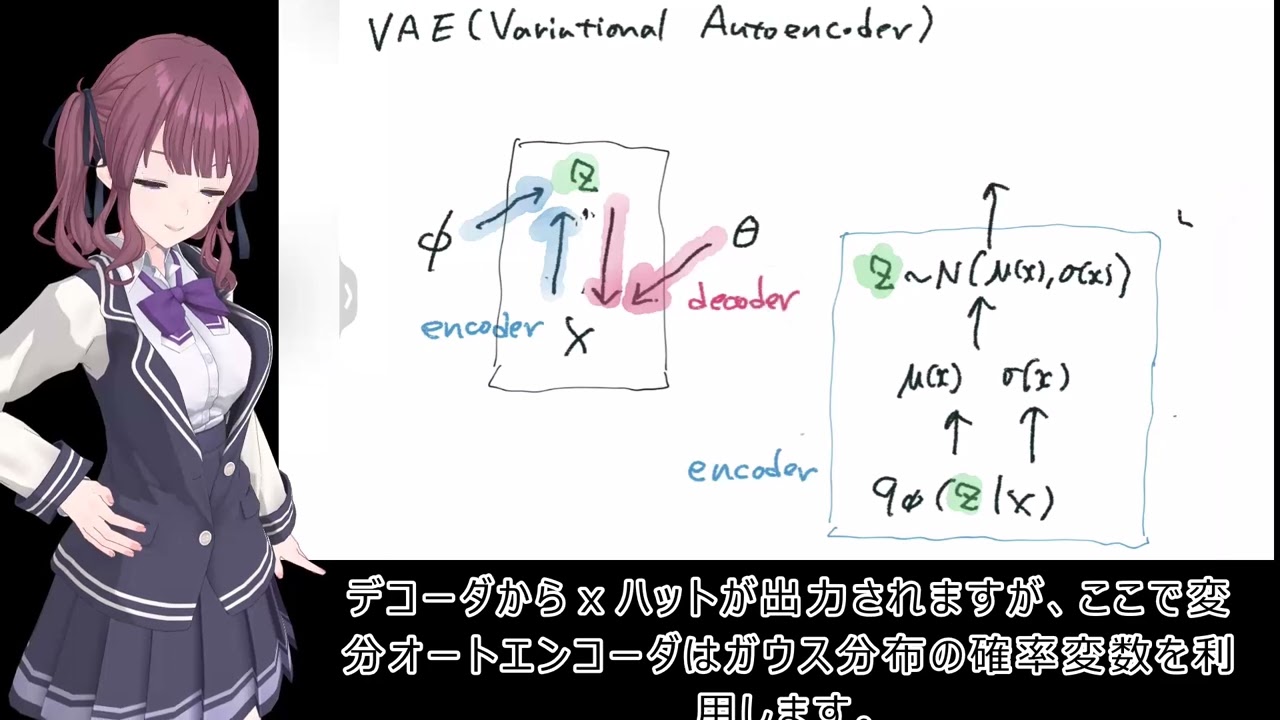 VAE(Variational Autoencoder)
Z
φ
θ
decoder
encoder
X
Z~N(μ(x),σ(x))
μ(x) σ(x)
encoder
qφ(Z|X)
デコーダからxハットが出力されますが、ここで変
分オートエンコーダはガウス分布の確率変数を利
用します。